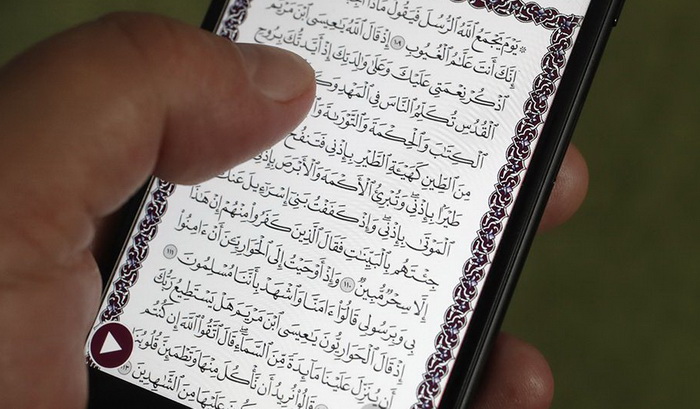 ۞ يَوْمَ يَجْمَعُ ٱللَّهُ ٱلرُّسُلَ فَيَقُولُ مَاذَآ
إِنَّكَ أَنتَ عَلَّٰمُ ٱلْغُيُوبِ ١٠٩ إِذْ قَالَ ٱللَّهُ يَٰعِيسَى ٱبْنَ مَرْيَمَ
ٱذْكُرْ نِعْمَتِى عَلَيْكَ وَعَلَىٰ وَٰلِدَتِكَ إِذْ أَيَّدتُّكَ بِرُوحِ
ٱلْقُدُسِ تُكَلِّمُ ٱلنَّاسَ فِى ٱلْمَهْدِ
ٱلْكِتَٰبَ وَٱلْحِكْمَةَ وَٱلتَّوْرَىٰةَ
مِنَ ٱلطِّينِ كَهَيْـَٔةِ ٱلطَّيْرِ بِإِذْنِى فَتَنفُخُ
طَيْرًۢا بِإِذْنِى وَتُبْرِئُ ٱلْأَكْمَهَ وَٱلْأَبْرَصَ
ٱلْمَوْتَىٰ بِإِذْنِى وَإِذْ كَفَفْتُ بَنِىٓ إِسْرَٰٓءِيلَ عَنكَ
جِئْتَهُم بِٱلْبَيِّنَٰتِ فَقَالَ ٱلَّذِينَ كَفَرُوا۟ مِنْهُمْ إِنْ هَٰذَآ
إِلَّا سِحْرٌ مُّبِينٌ ١١٠ وَإِذْ أَوْحَيْتُ إِلَى ٱلْحَوَارِيِّـۧنَ أَنْ ءَامِنُوا۟
بِى وَبِرَسُولِى قَالُوٓا۟ ءَامَنَّا وَٱشْهَدْ بِأَنَّنَا مُسْلِمُونَ ١١١
إِذْ قَالَ ٱلْحَوَارِيُّونَ يَٰعِيسَى ٱبْنَ مَرْيَمَ هَلْ يَسْتَطِيعُ رَبُّكَ
أَن يُنَزِّلَ عَلَيْنَا مَآئِدَةً مِّنَ ٱلسَّمَآءِ قَالَ ٱتَّقُوا۟ ٱللَّهَ إِن كُنتُم
قَالُوا۟ نُرِيدُ أَن نَّأْكُلَ مِنْهَا وَتَطْمَئِنَّ قُلُوبُنَا
عَلَيْهَا مِنَ ٱلشَّٰهِدِينَ